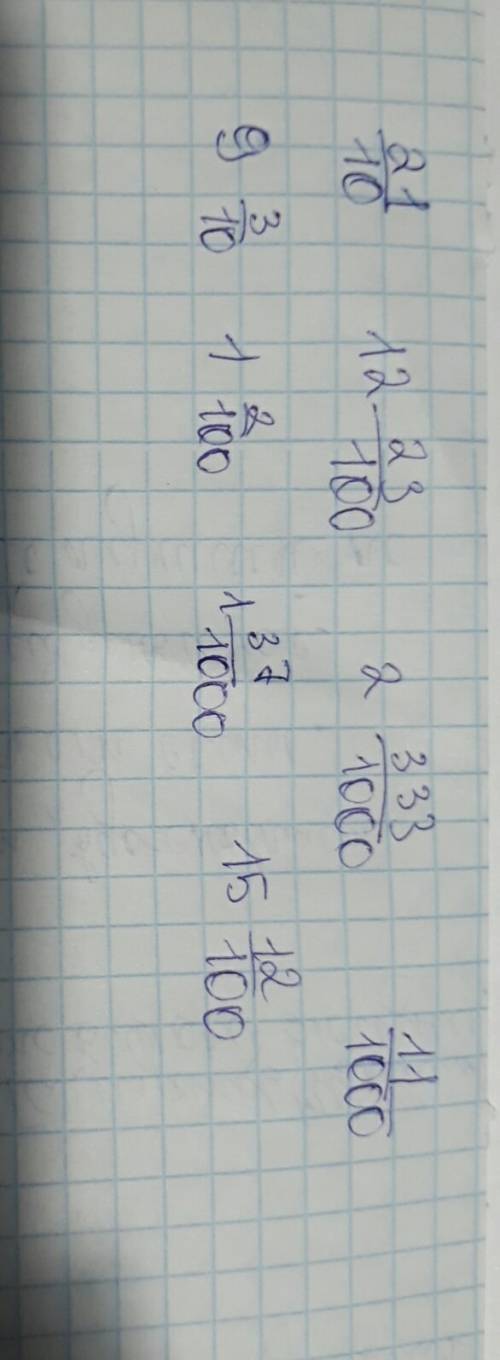 21/10 12 23/100 2 333/1000 11/1000
9 3/10 1 2/100 1 37/1000 15 12/100